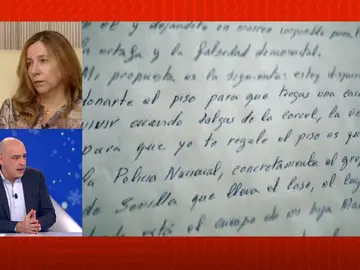 en el y ayudando en manera imposible para
la estafa y la falsedad documental.
Mi propuesta es la siguiente: estoy dispues
donarte el piso para que tengas una casa
vivir cuando salgas de la carcel, la ún
para que yo te regale el piso es que
la Policía Nacional, concretamente el gru
de Sevilla que lleva el caso, el lug
está el cuerpo de mi hija Ma